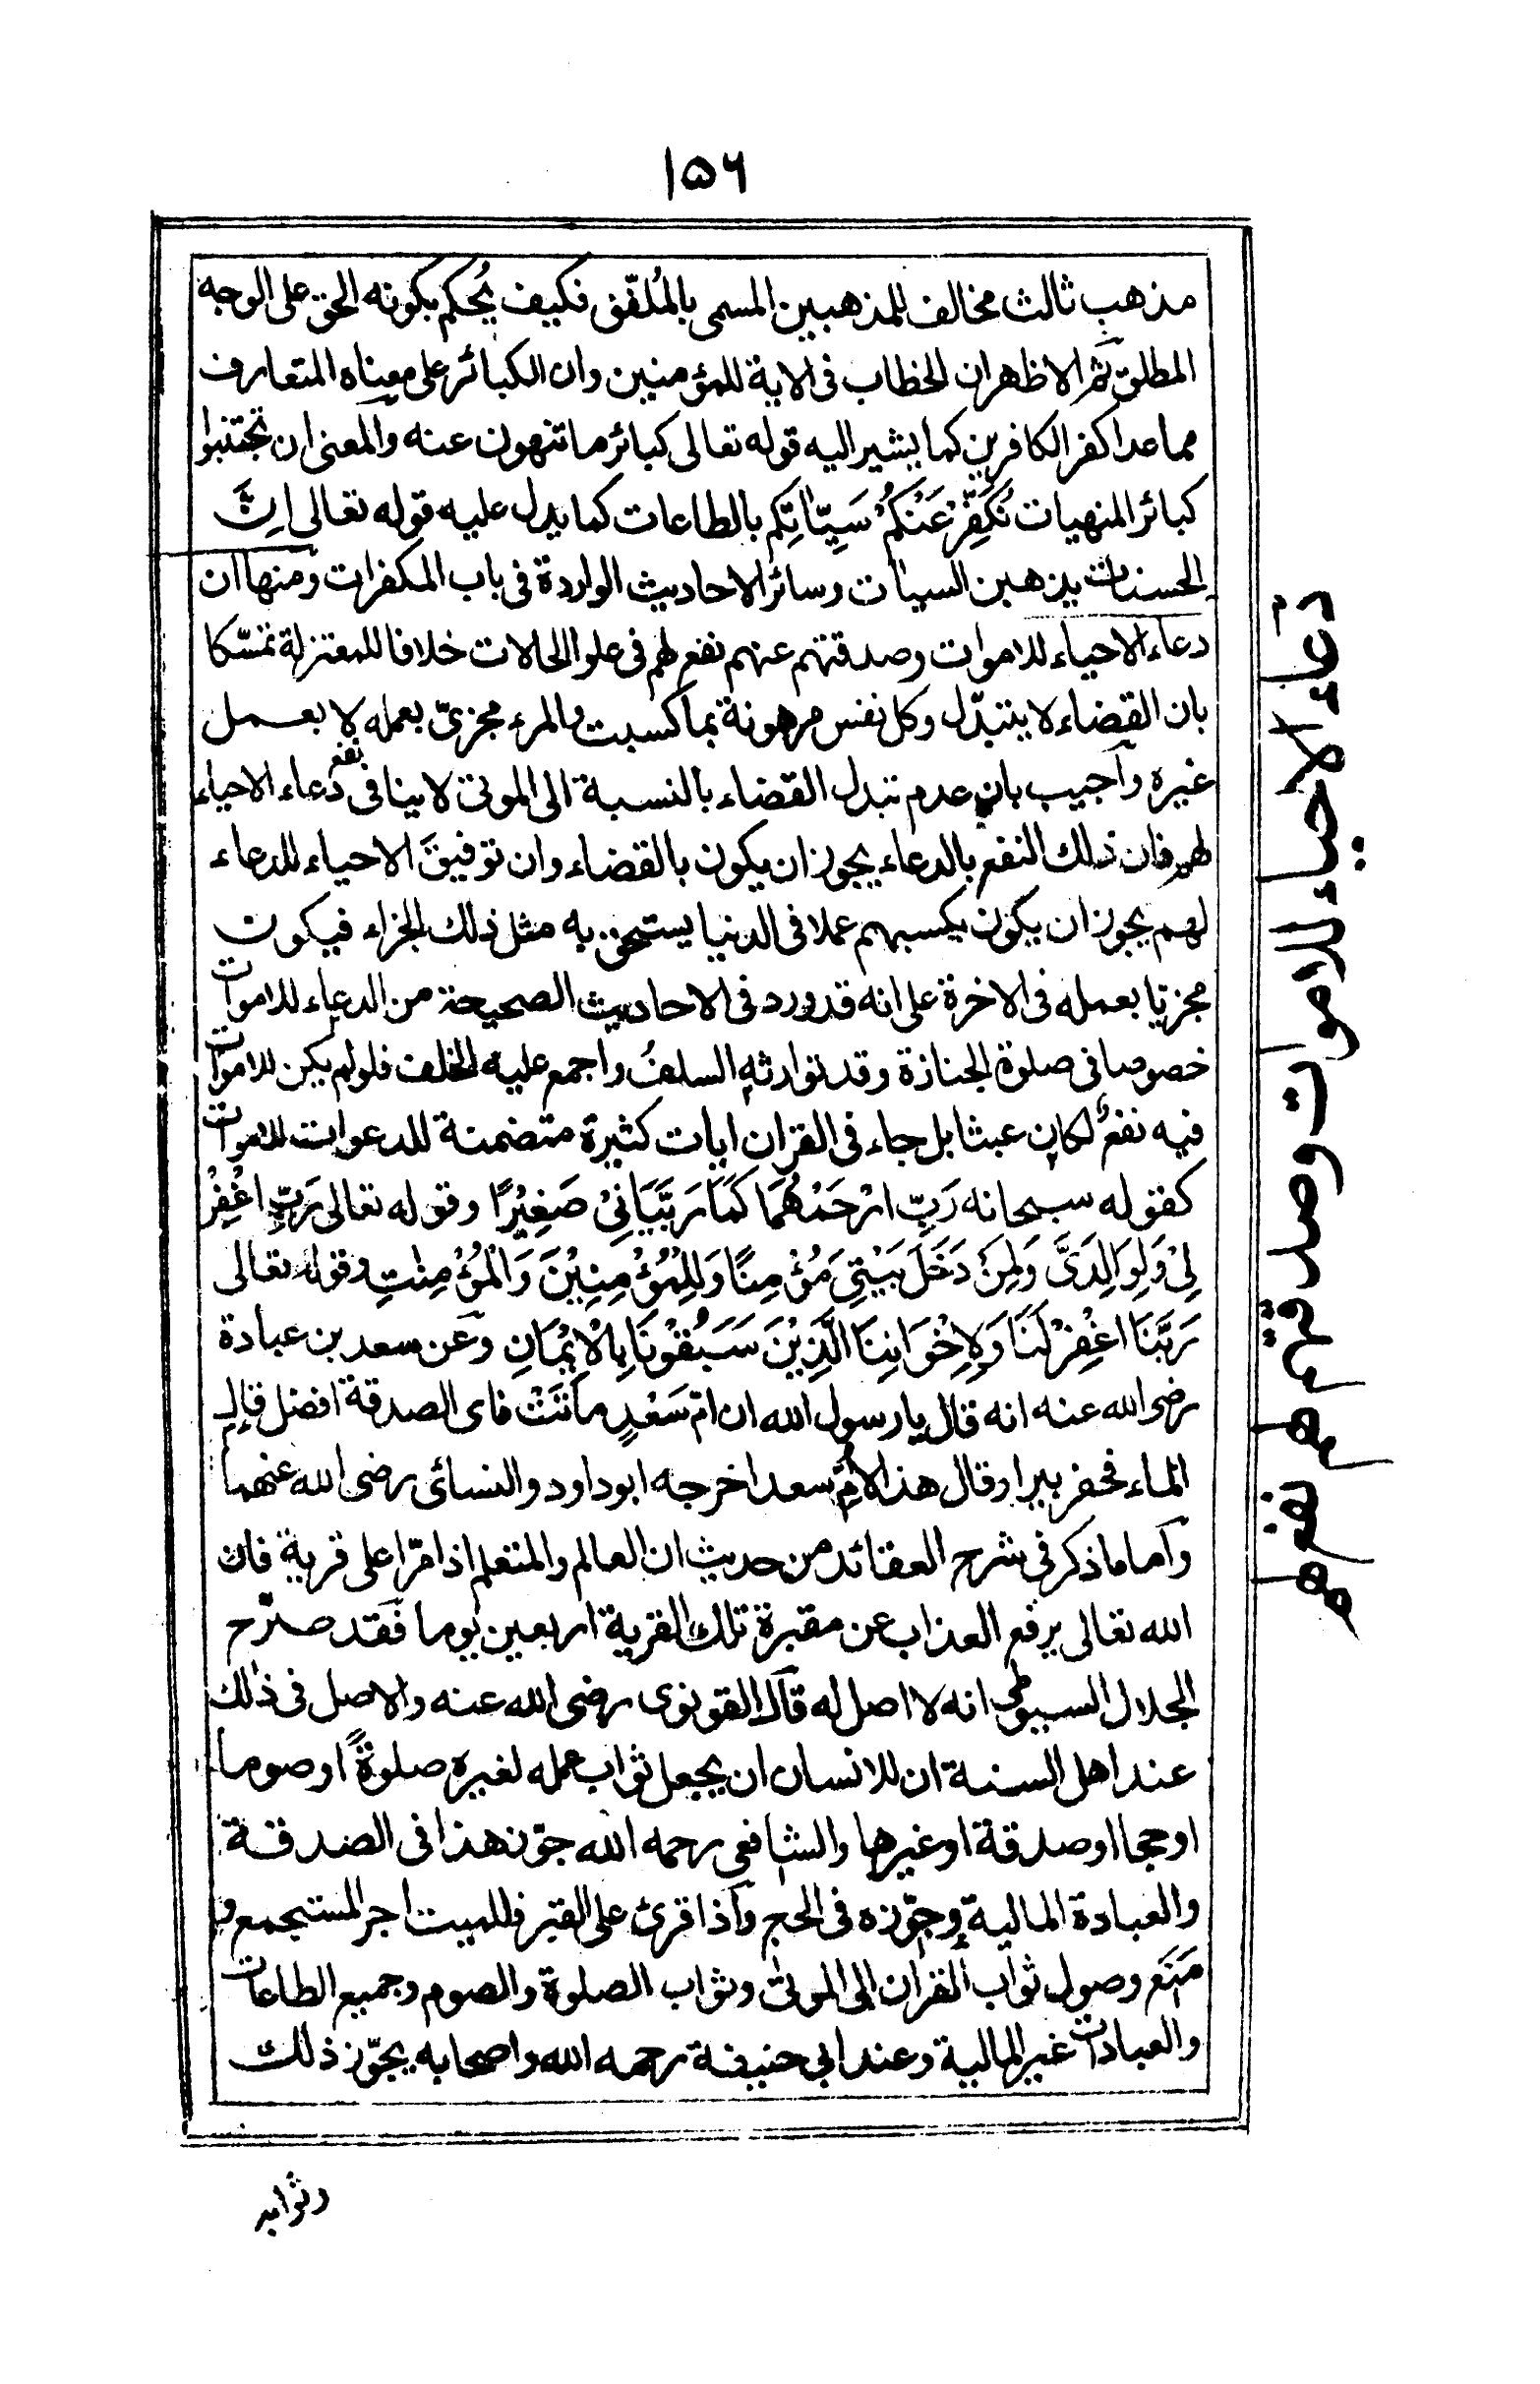 ۱۵۶
مذهب ثالث مخالف للمذهبين المسمى بالمُلفّق فكيف يُحكم بكونه الحق على الوجه
المطلق ثم الاظهر ان الخطاب فى الاية للمؤمنين وان الكبائر على معناه المتعارف
مما عدا كفر الكافرين كما يشير اليه قوله تعالى كبائر ما تنهون عنه والمعنى ان تجتنبوا
كبائر المنهيات نُكَفِّرْ عَنْكُمْ سَيِّاٰتِكُم بالطاعات كما يدل عليه قوله تعالى اِنَّ
الحسنات يذهبن السيات وسائر الاحاديث الواردة فى باب المكفرات ومنها ان
دعاء الاحياء للاموات وصدقتهم عنهم نفع لهم فى علو الحالات خلافا للمعتزلة تمسّكا
بان القضاء لا يتبدّل وكل نفس مرهونة بما كسبت والمرء مجزىّ بعمله لا بعمل
غيره وآجيب بان عدم تبدل القضاء بالنسبة الى الموتى لا ينافى نفع دعاء الاحياء
لهم فان ذلك النفع بالدعاء يجوز ان يكون بالقضاء وان توفيقَ الاحياء للدعاء
لهم يجوز ان يكون بكسبهم عملا فى الدنيا يستحق به مثل ذلك الجزاء فيكون
مجزيا بعمله فى الاخرة على انه قد ورد فى الاحاديث الصحيحة من الدعاء للاموات
خصوصا فى صلوة الجنازة وقد توارثه السلفُ واجمع عليه الخلف فلو لم يكن للاموات
فيه نفعٌ لكان عبثا بل جاء فى القران ايات كثيرة متضمنة للدعوات للاموات
كقوله سبحانه رَبِّ ارْحَمْهُمَا كَمَا رَبَّيَانِىْ صَغِيْرًا وقوله تعالى رَبِّ اغْفِرْ
لِىْ وَلِوَالِدَىَّ وَلِمَنْ دَخَلَ بَيْتِىَ مُؤْمِنًا وَلِلْمُؤْمِنِيْنَ وَالْمُؤْمِنٰتِ وقوله تعالى
رَبَّنَا اغْفِرْ لَنَا وَلِاِخْوَانِنَا الَّذِيْنَ سَبَقُوْنَا بِالْاِيْمَانِ وعن سعد بن عبادة
رضى الله عنه انه قال يا رسول الله ان امّ سَعْدٍ ماتَتْ فاى الصدقة افضل قال
الماء فحفر بيرا وقال هذا لاُمِّ سعد اخرجه ابو داود والنسائى رضى الله عنهما
وآما ما ذكر فى شرح العقائد من حديث ان العالم والمتعلم اذا مرّا على قرية فان
الله تعالى يرفع العذاب عن مقبرة تلك القرية اربعين يوما فقد صرّح
الجلال السيوطى انه لا اصل له قال القونوى رضى الله عنه والاصل فى ذلك
عند اهل السنة ان للانسان ان يجعل ثواب عمله لغيره صلوةً او صوما
او حجا او صدقة او غيرها والشافعى رحمه الله جوّز هذا فى الصدقة
والعبادة المالية وجوّزه فى الحج وآذا قرئ على القبر فللميت اجر المستجمع و
مَنَعَ وصول ثواب القران الى الموتى وثواب الصلوة والصوم وجميع الطاعات
والعبادات غير المالية وعند ابى حنيفة رحمه الله واصحابه يجوّز ذلك
وثوابه
دعاء الاحياء للاموات وصدقتهم نفع لهم